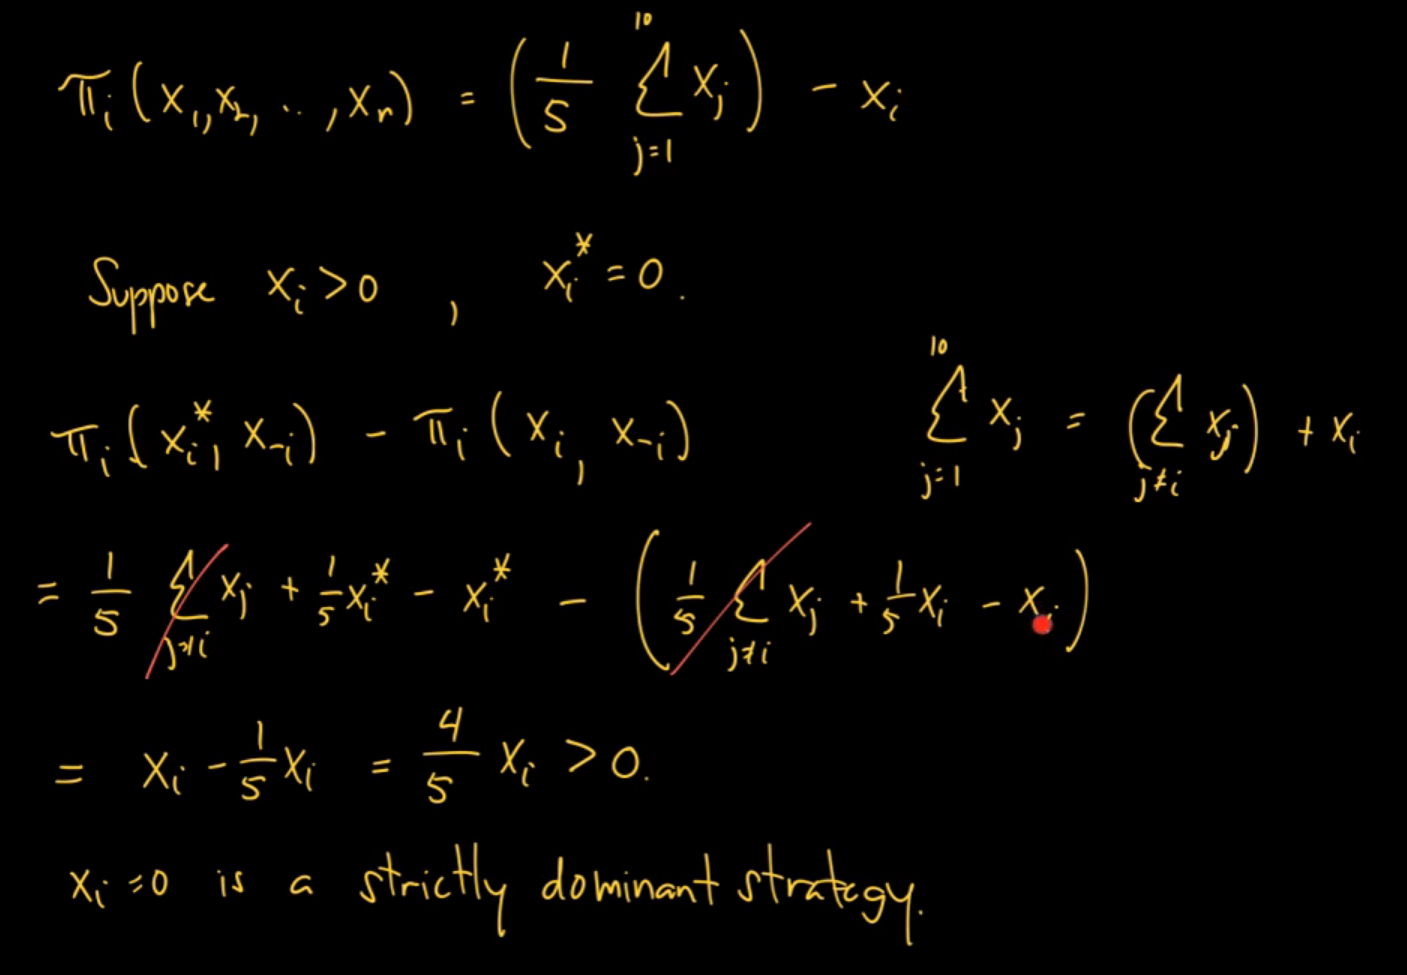 π_i(x_1, x_2, .., x_n) = (1/5 Σ_{j=1}^{10} x_j) - x_i
Suppose x_i > 0 , x_i^* = 0.
π_i(x_i^*, x_{-i}) - π_i(x_i, x_{-i})
Σ_{j=1}^{10} x_j = (Σ_{j≠i} x_j) + x_i
= 1/5 Σ_{j≠i} x_j + 1/5 x_i^* - x_i^* - (1/5 Σ_{j≠i} x_j + 1/5 x_i - x_i)
= x_i - 1/5 x_i = 4/5 x_i > 0.
x_i = 0 is a strictly dominant strategy.